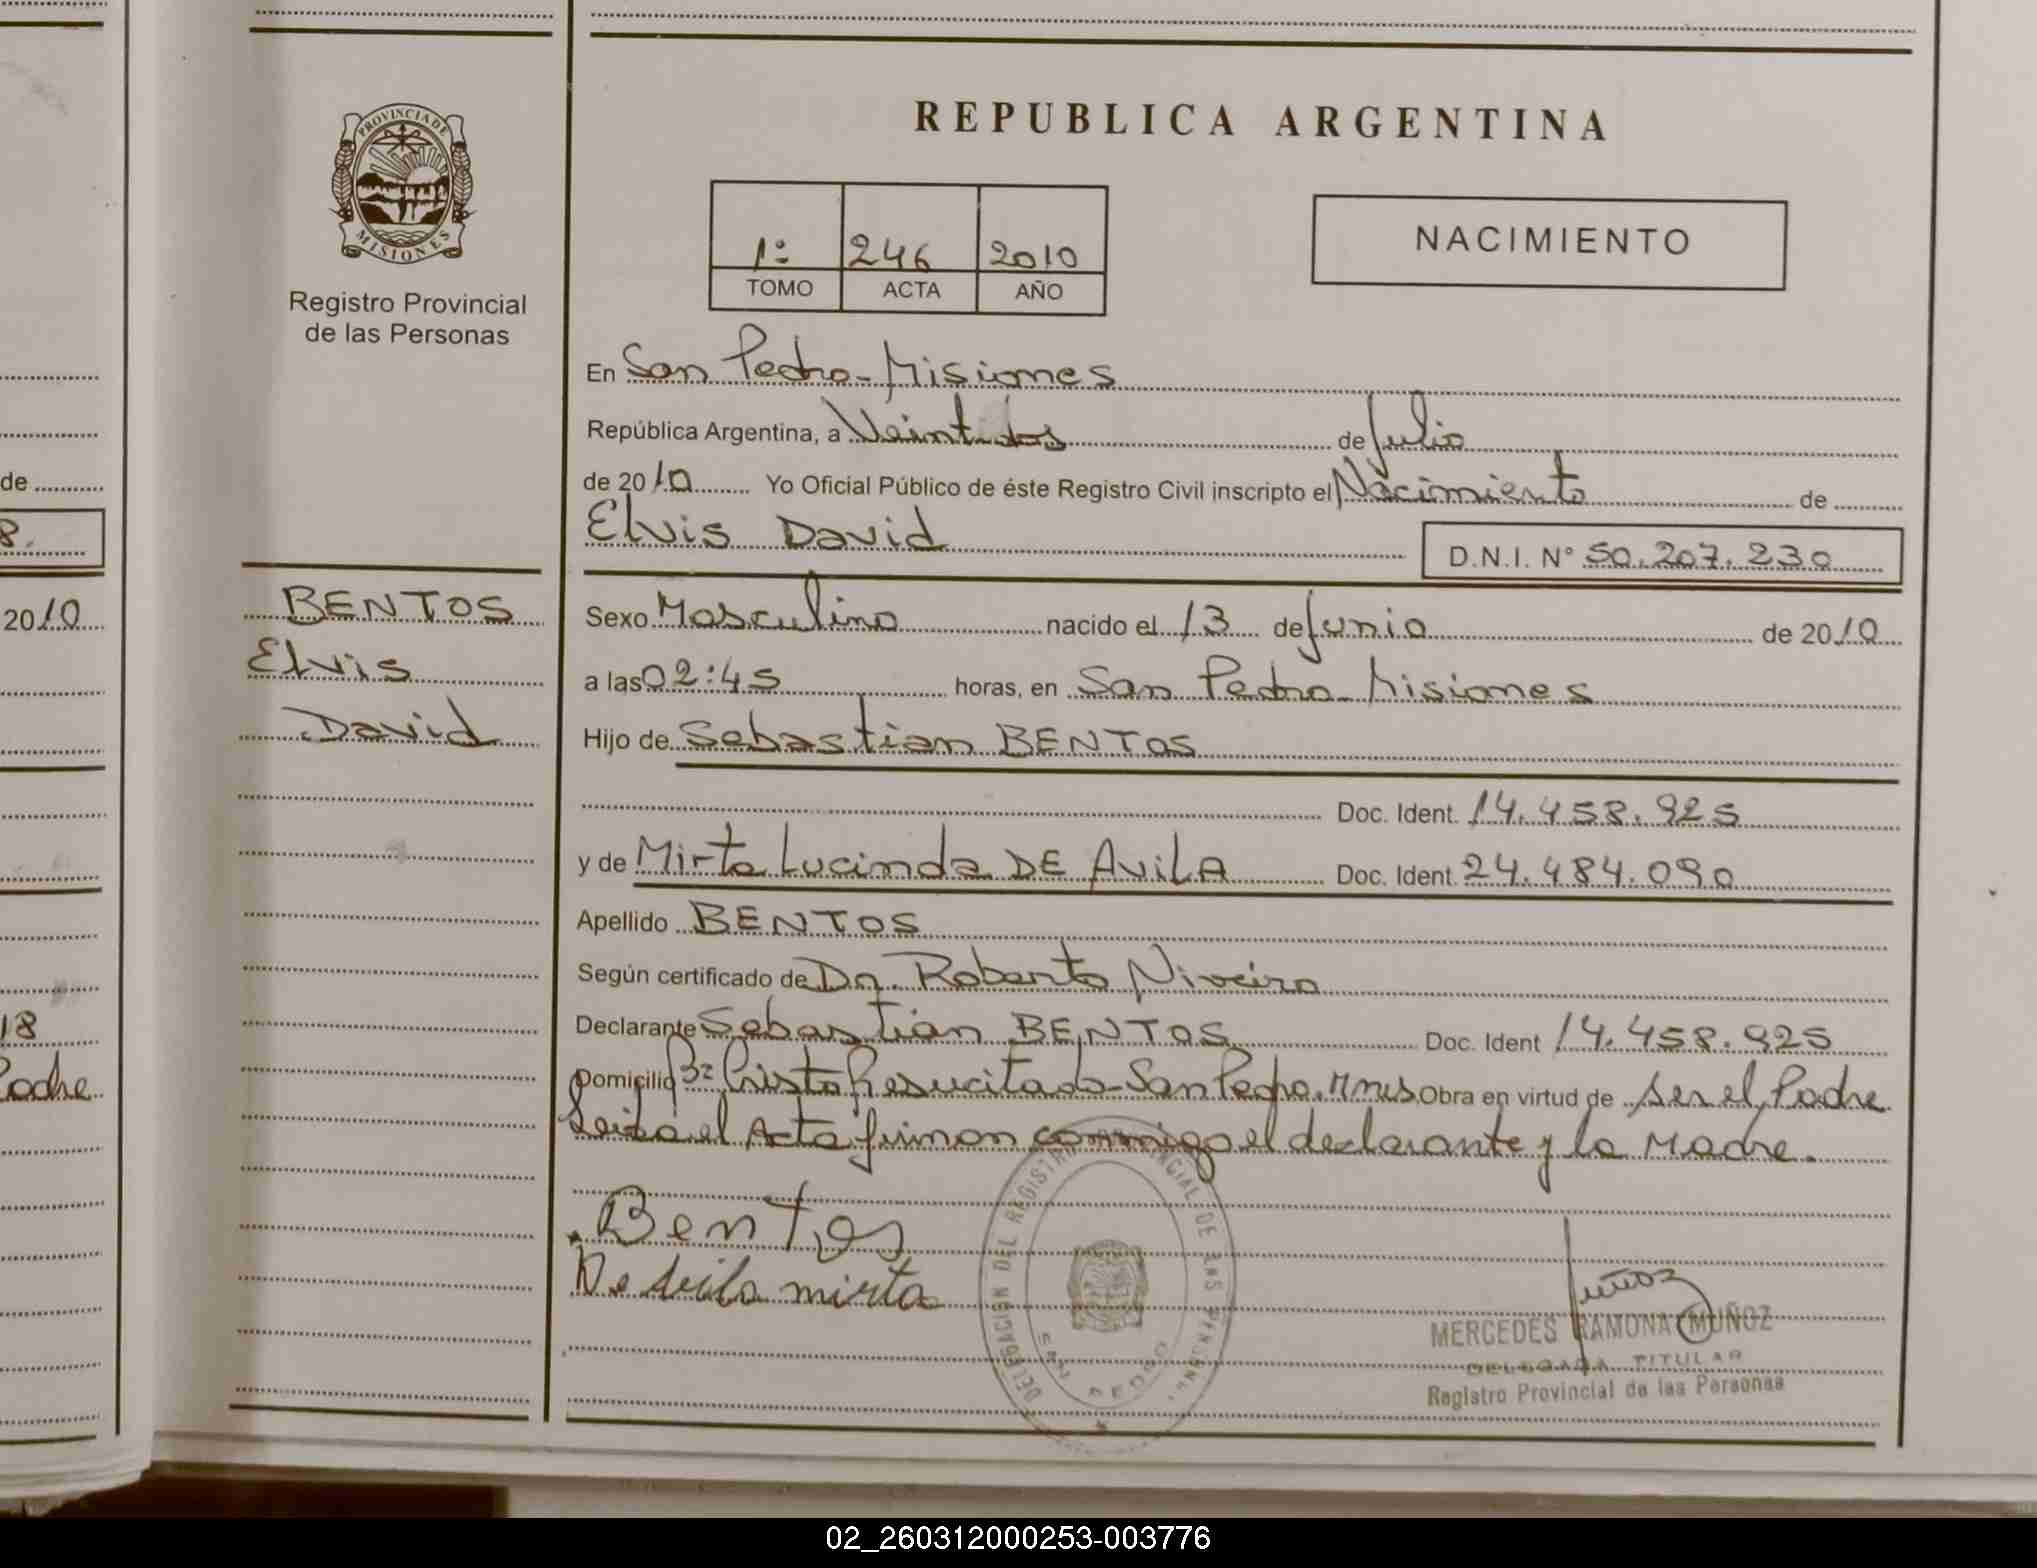 REPUBLICA ARGENTINA
PROVINCIA DE MISIONES
Registro Provincial
de las Personas
1º 246 2010
TOMO ACTA AÑO
NACIMIENTO
En San Pedro-Misiones
República Argentina, a Veintidos de Julio
de 2010 Yo Oficial Público de éste Registro Civil inscripto el Nacimiento de
Elvis David
D.N.I. N° 50.207.230
BENTOS
Elvis
David
Sexo Masculino nacido el 13 de Junio de 2010
a las 02:45 horas, en San Pedro-Misiones
Hijo de Sebastian BENTOS
Doc. Ident. 14.458.925
y de Mirta Lucinda DE AVILA Doc. Ident. 24.484.090
Apellido BENTOS
Según certificado de Dr. Roberto Niveiro
Declarante Sebastian BENTOS Doc. Ident 14.458.925
Domicilio Bº Cristo Resucitado-San Pedro. Mnes Obra en virtud de ser el Padre
Leida el Acta firman conmigo el declarante y la Madre.
Bentos
De Avila mirta
DELEGACIÓN DEL REGISTRO PROVINCIAL DE LAS PERSONAS
SAN PEDRO
Muñoz
MERCEDES RAMONA MUÑOZ
DELEGADA TITULAR
Registro Provincial de las Personas
de
8.
2010
18
Padre
02_260312000253-003776